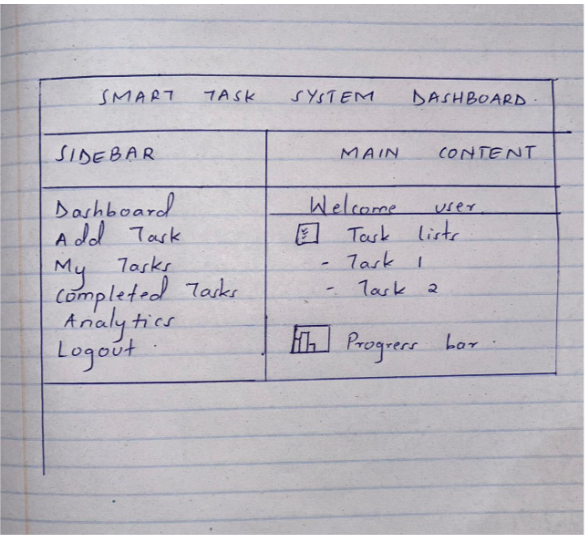 SMART TASK SYSTEM DASHBOARD.
SIDEBAR
Dashboard
Add Task
My Tasks
Completed Tasks
Analytics
Logout.
MAIN CONTENT
Welcome user
Task lists.
- Task 1
- Task 2
Progress bar.